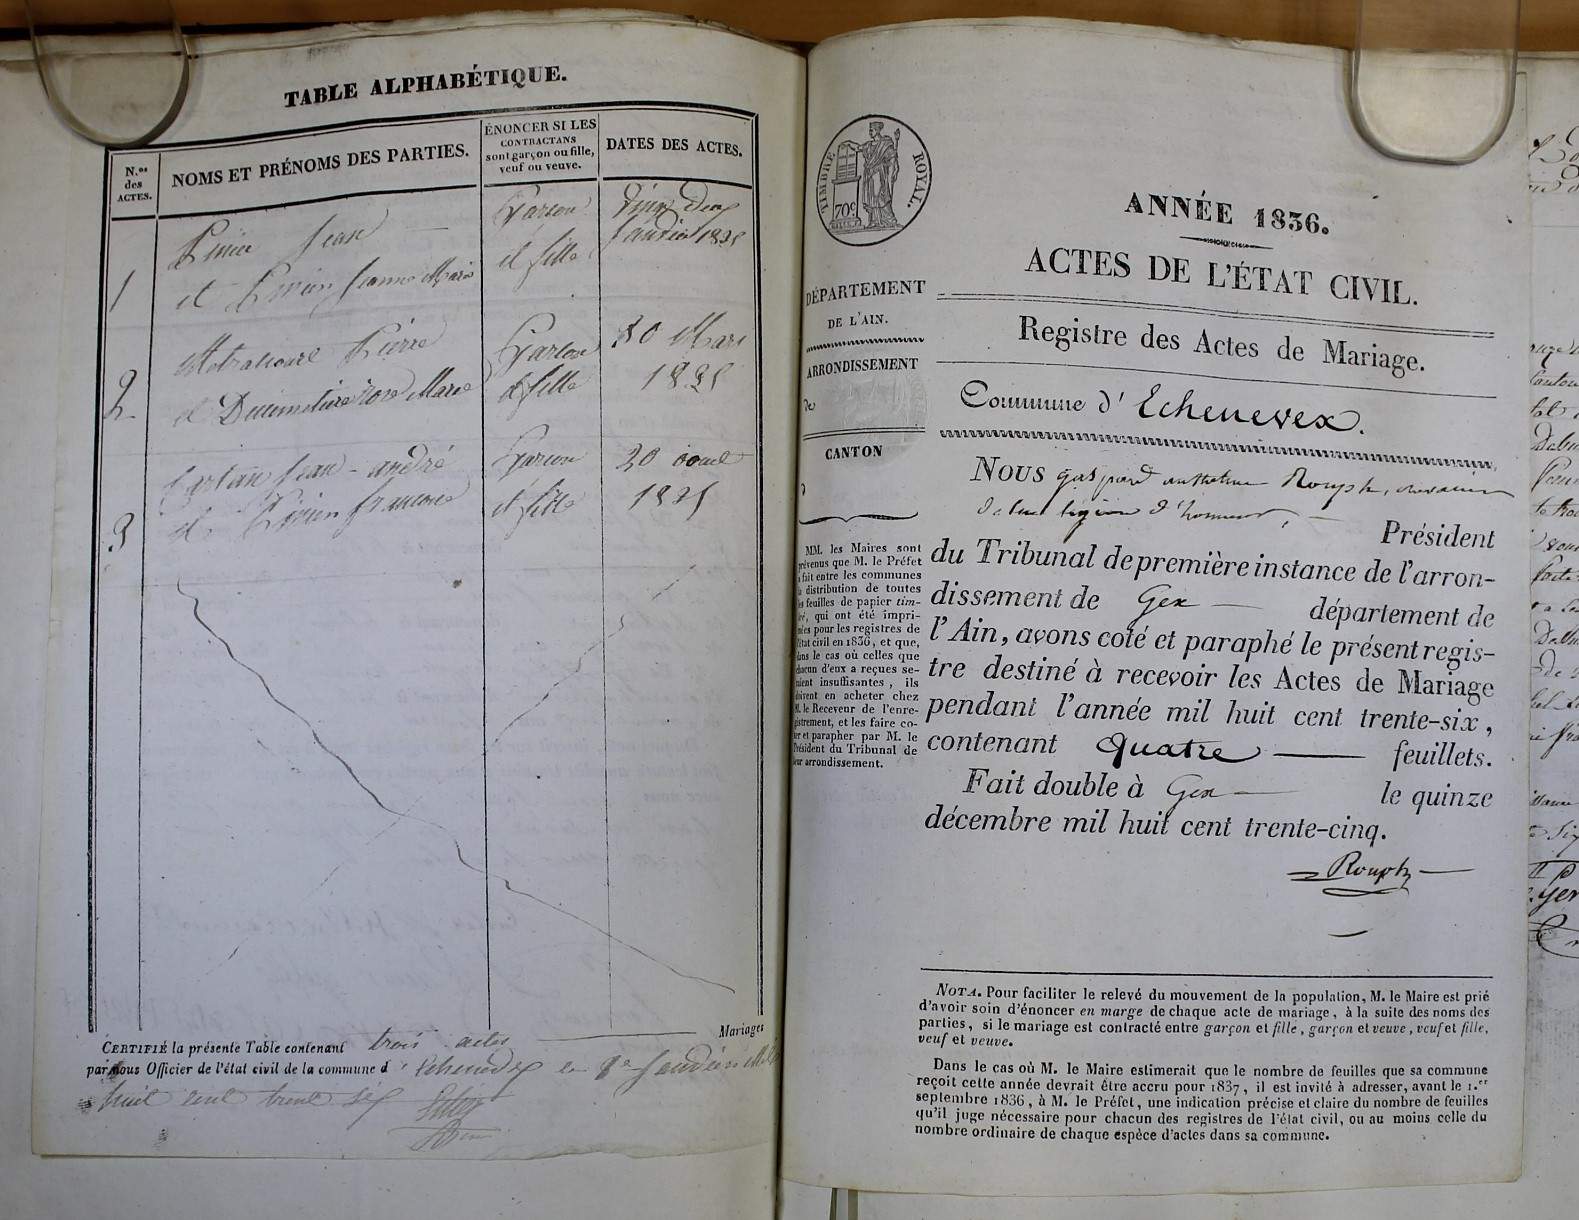 TABLE ALPHABÉTIQUE.
N.os des ACTES.
NOMS ET PRÉNOMS DES PARTIES.
ÉNONCER SI LES
CONTRACTANS
sont garçon ou fille,
veuf ou veuve.
DATES DES ACTES.
Jean Garçon
1 et Jeanne Marie et fille
Pierre Garçon 30 Mars
2 Rose Marie et fille 1835
Jean-andré Garçon
3 et et fille 1835
Mariages
CERTIFIÉ la présente Table contenant trois actes
par nous Officier de l'état civil de la commune d
huit cent trent six
TIMBRE ROYAL.
70c
DÉPARTEMENT
DE L'AIN.
ARRONDISSEMENT
de
CANTON
d
MM. les Maires sont
prévenus que M. le Préfet
a fait entre les communes
la distribution de toutes
les feuilles de papier tim-
bré, qui ont été impri-
mées pour les registres de
l'état civil en 1836, et que,
dans le cas où celles que
chacun d'eux a reçues se-
raient insuffisantes, ils
doivent en acheter chez
M. le Receveur de l'enre-
gistrement, et les faire co-
ter et parapher par M. le
Président du Tribunal de
leur arrondissement.
ANNÉE 1836.
ACTES DE L'ÉTAT CIVIL.
Registre des Actes de Mariage.
Commune d'Echenevex.
NOUS gaspard Rouph, chevalier
de la légion d'honneur, Président
du Tribunal de première instance de l'arron-
dissement de Gex département de
l'Ain, avons coté et paraphé le présent regis-
tre destiné à recevoir les Actes de Mariage
pendant l'année mil huit cent trente-six,
contenant quatre feuillets.
Fait double à Gex le quinze
décembre mil huit cent trente-cinq.
Rouph
NOTA. Pour faciliter le relevé du mouvement de la population, M. le Maire est prié
d'avoir soin d'énoncer en marge de chaque acte de mariage, à la suite des noms des
parties, si le mariage est contracté entre garçon et fille, garçon et veuve, veuf et fille,
veuf et veuve.
Dans le cas où M. le Maire estimerait que le nombre de feuilles que sa commune
reçoit cette année devrait être accru pour 1837, il est invité à adresser, avant le 1.er
septembre 1836, à M. le Préfet, une indication précise et claire du nombre de feuilles
qu'il juge nécessaire pour chacun des registres de l'état civil, ou au moins celle du
nombre ordinaire de chaque espèce d'actes dans sa commune.